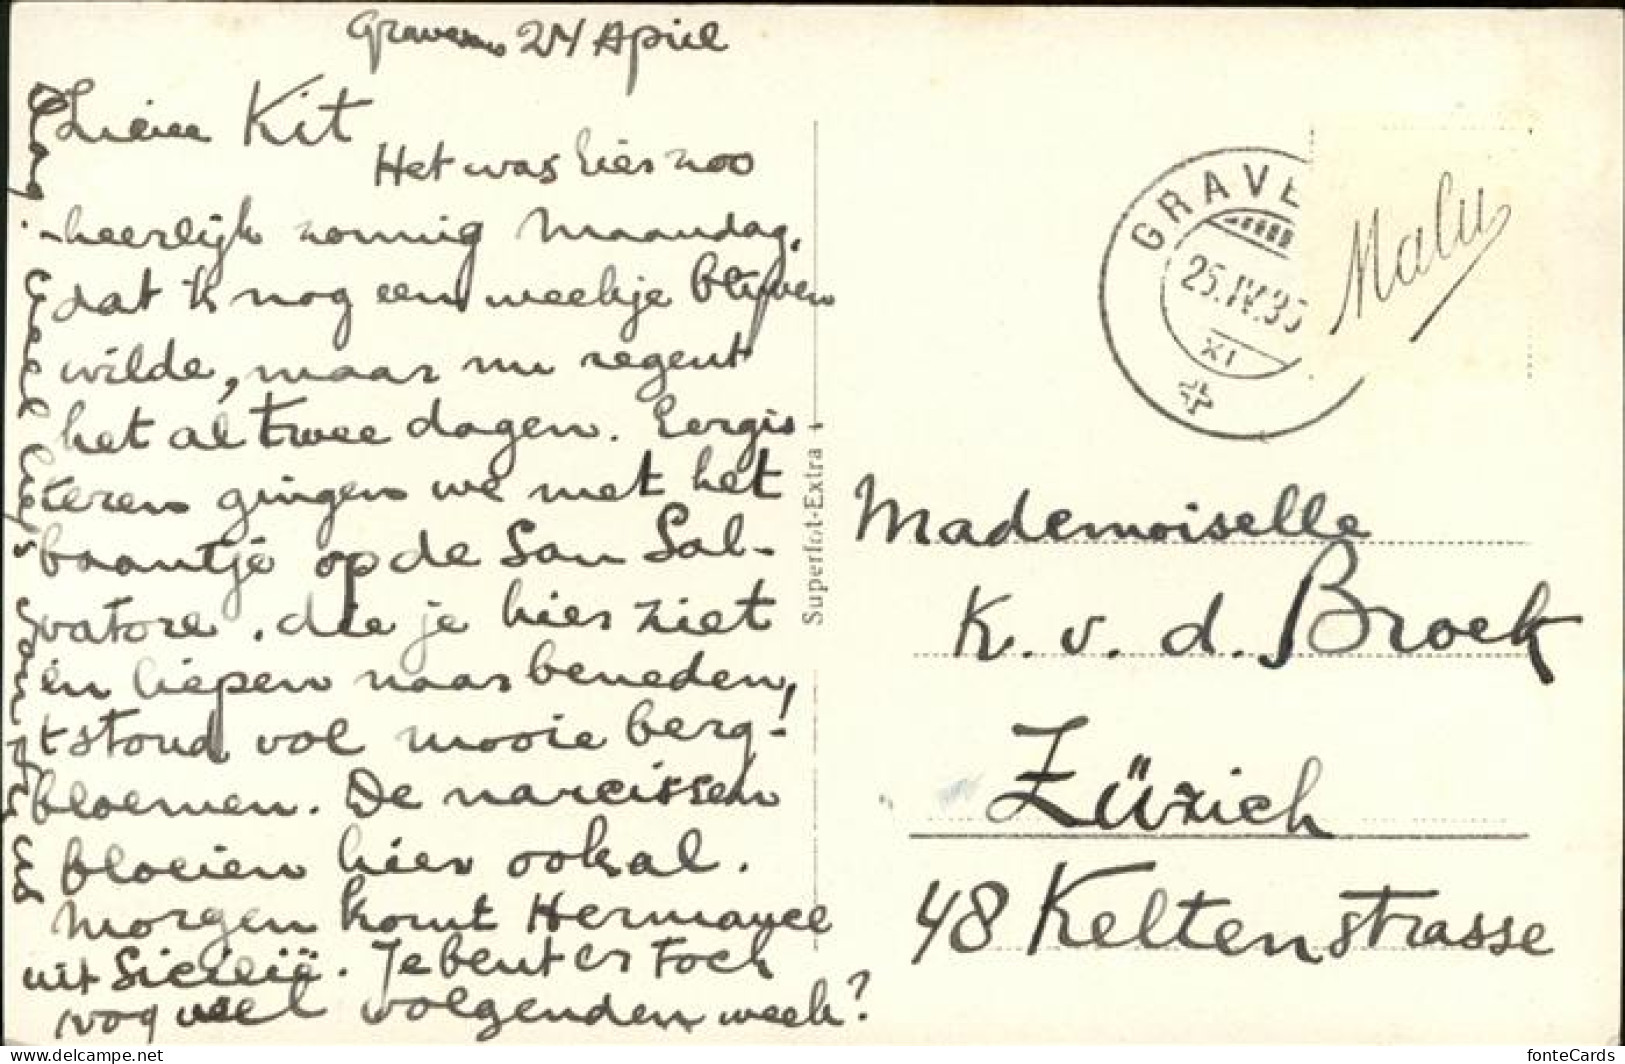 Gravesano 24 April
Lieve Kit
Het was hier zoo
heerlijk zonnig Maandag,
dat ik nog een weekje blijven
wilde, maar nu regent
het al twee dagen. Eergis-
teren gingen we met het
baantje op de San Sal-
vatore. die je hier ziet
en liepen naar beneden,
't stond vol mooie berg-
bloemen. De narcissen
bloeien hier ook al.
Morgen komt Hermance
uit Sicilië. Je bent er toch
nog wel volgenden week?
Dag.
heel liefs
Superfot-Extra
GRAVE
25.IV.35
XI
Malu
Mademoiselle
K. v. d. Broek
Zürich
48 Keltenstrasse
fonteCards
www.delcampe.net